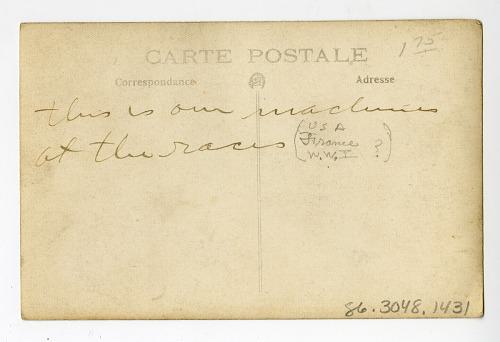 CARTE POSTALE
1 75
Correspondance
Adresse
this is our machines
at the races
(USA
France
W.W.I ?)
86.3048.1431